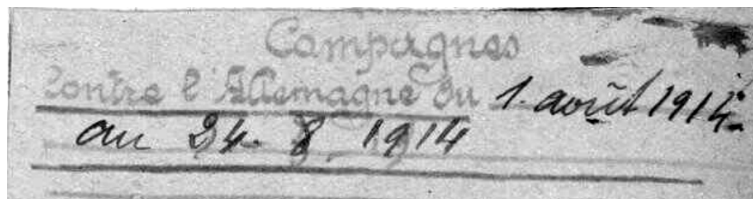 Campagnes
Contre l'Allemagne du 1. août 1914
au 24. 8 1914